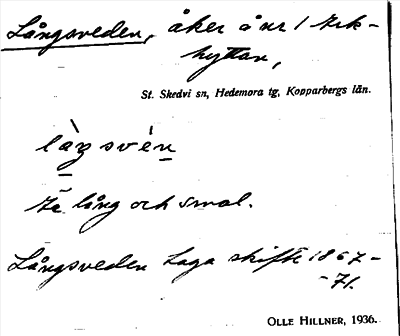 Långsveden, åker å nr 1 Ark-
hyttan,
St. Skedvi sn, Hedemora tg, Kopparbergs län.
lång och smal.
Långsveden Laga skifte 1867-
-71.
OLLE HILLNER, 1936.